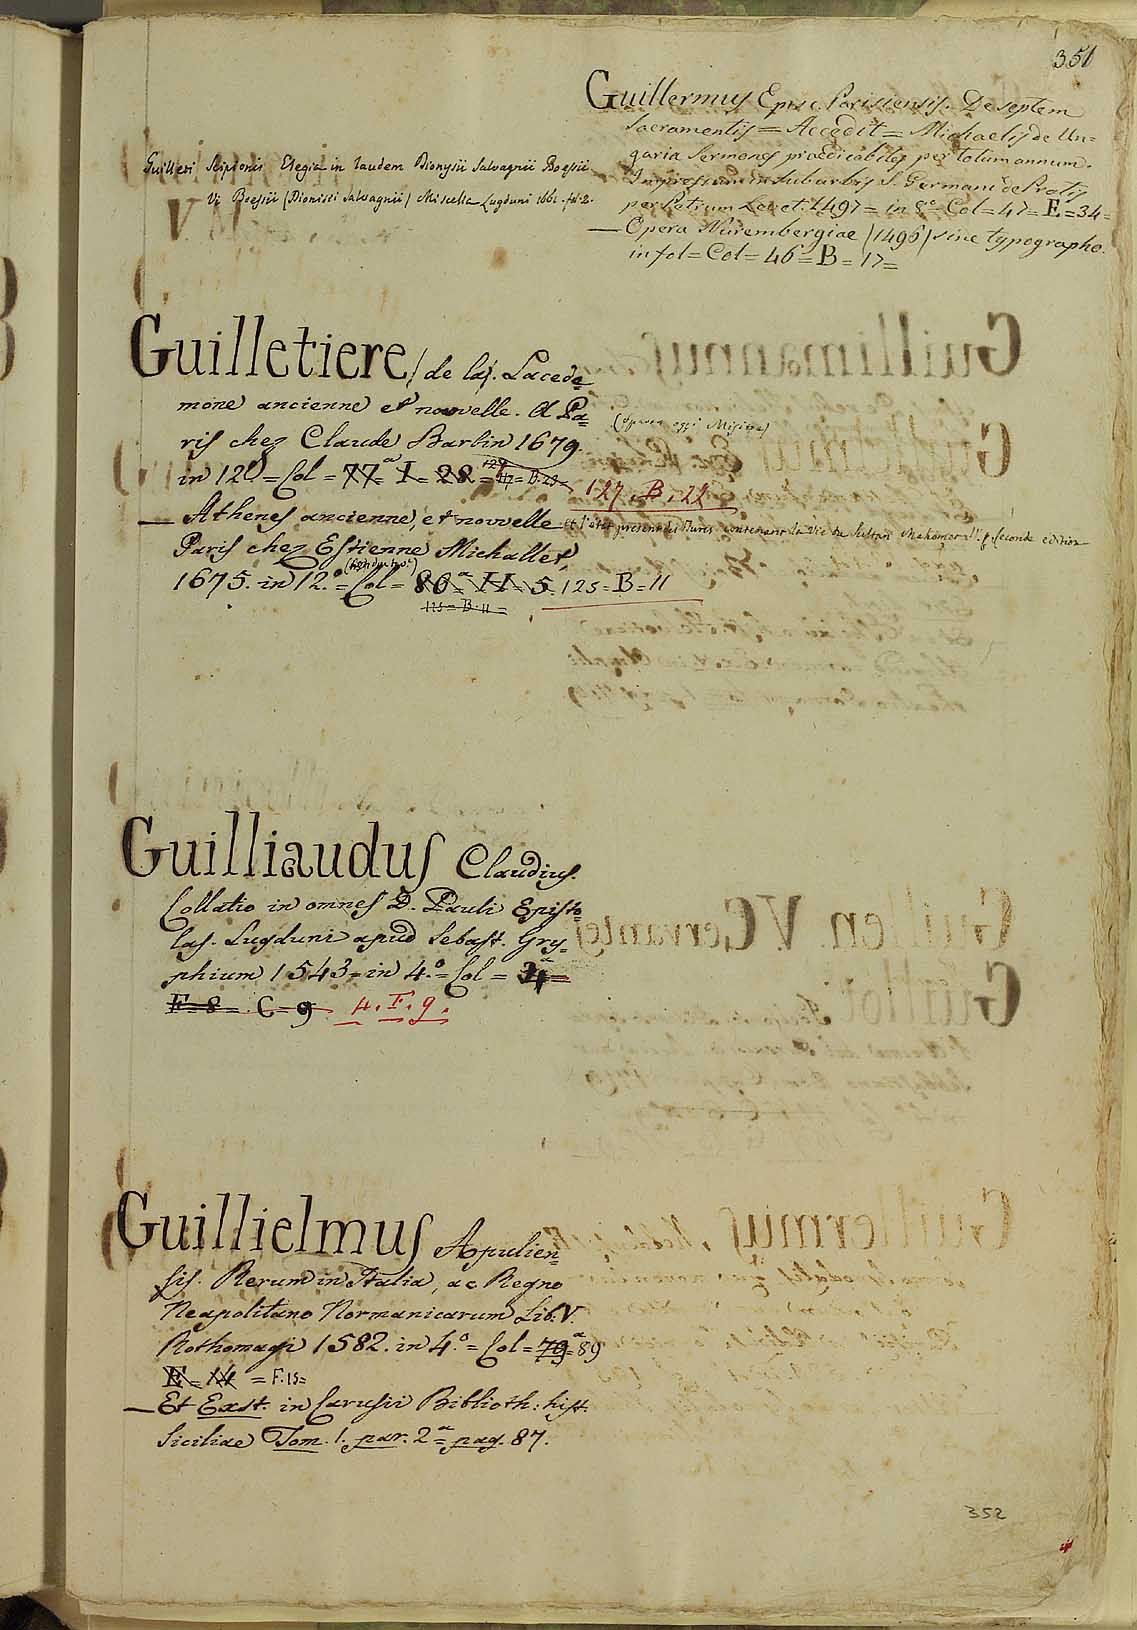 351
Guillermus Episc. Parisiensis. De septem
Sacramentis = Accedit = Michaelis de Un=
garia Sermones praedicabiles per totum annum.
Impressum in suburbis S. Germani de Pratis
per Petrum Levet. 1497 = in 8.º Col = 47 = E = 34 =
— Opera Nurembergiae (1496) sine typographo.
in fol = Col = 46 = B = 17 =
Guilleri Scipionis Elegia in laudem Dionysii Salvagnii Boessii
V. Boessii (Dionisii Salvagnii) Miscella Lugduni 1661. fol. 2.
Guilletiere (de la). Lacede=
mone ancienne et nouvelle. A Pa=
ris chez Claude Barbin 1679.
(Opera oggi Misira)
in 12º = Col = 77ª = I = 28 = 127 = B = 22 =
127. B. 22
— Athenes ancienne, et nouvelle et l'état present des Turcs contenant la Vie du Sultan Mahomet IV. seconde edition
Paris chez Estienne Michallet,
1675. in 12.º = Col = 80ª H 5. 125 = B = 11
125 = B = 11 =
Guilliaudus Claudius.
Collatio in omnes D. Pauli Episto=
las. Lugduni apud Sebast. Gry=
phium 1543 = in 4.º = Col = 4ª =
F = 8 = C = 9 4. F. 9.
Guillielmus Apulien=
sis. Rerum in Italia, ac Regno
Neapolitano Normanicarum Lib. V.
Rothomagi 1582. in 4.º = Col = 79ª = 89
E = 14 = F. 15 =
— Et Exst. in Carusii Biblioth: hist.
Siciliae Tom. 1. par. 2ª = pag. 87.
352